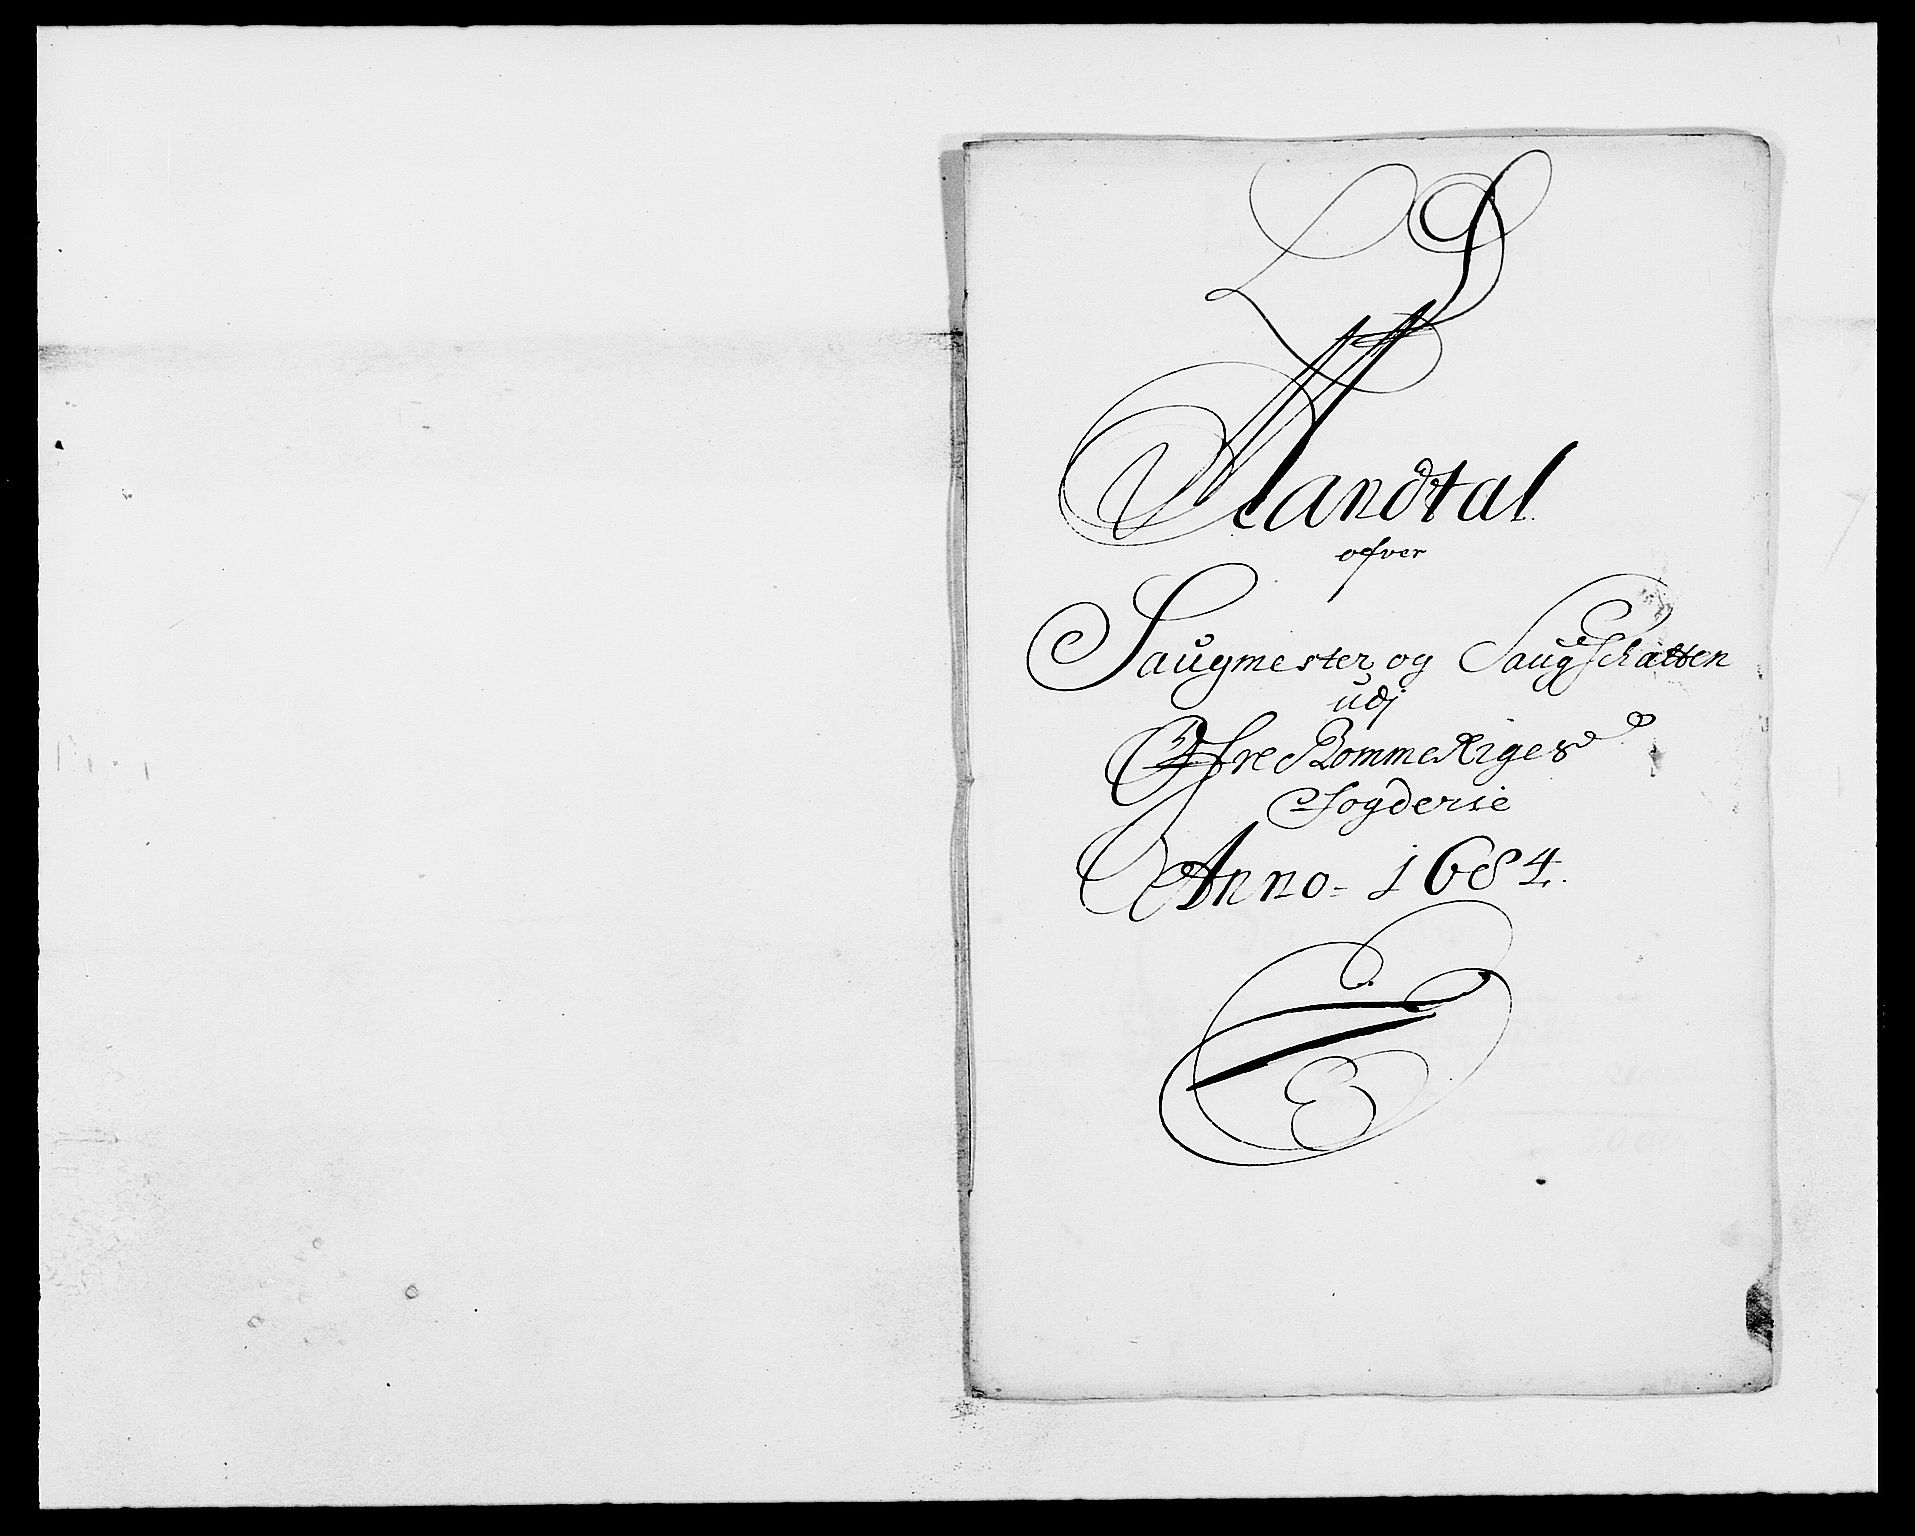 L D
Mandtal
ofver
Saugmester og Saugschatten
udj
Øfre Rommeriges
Fogderie
Anno - 1684.